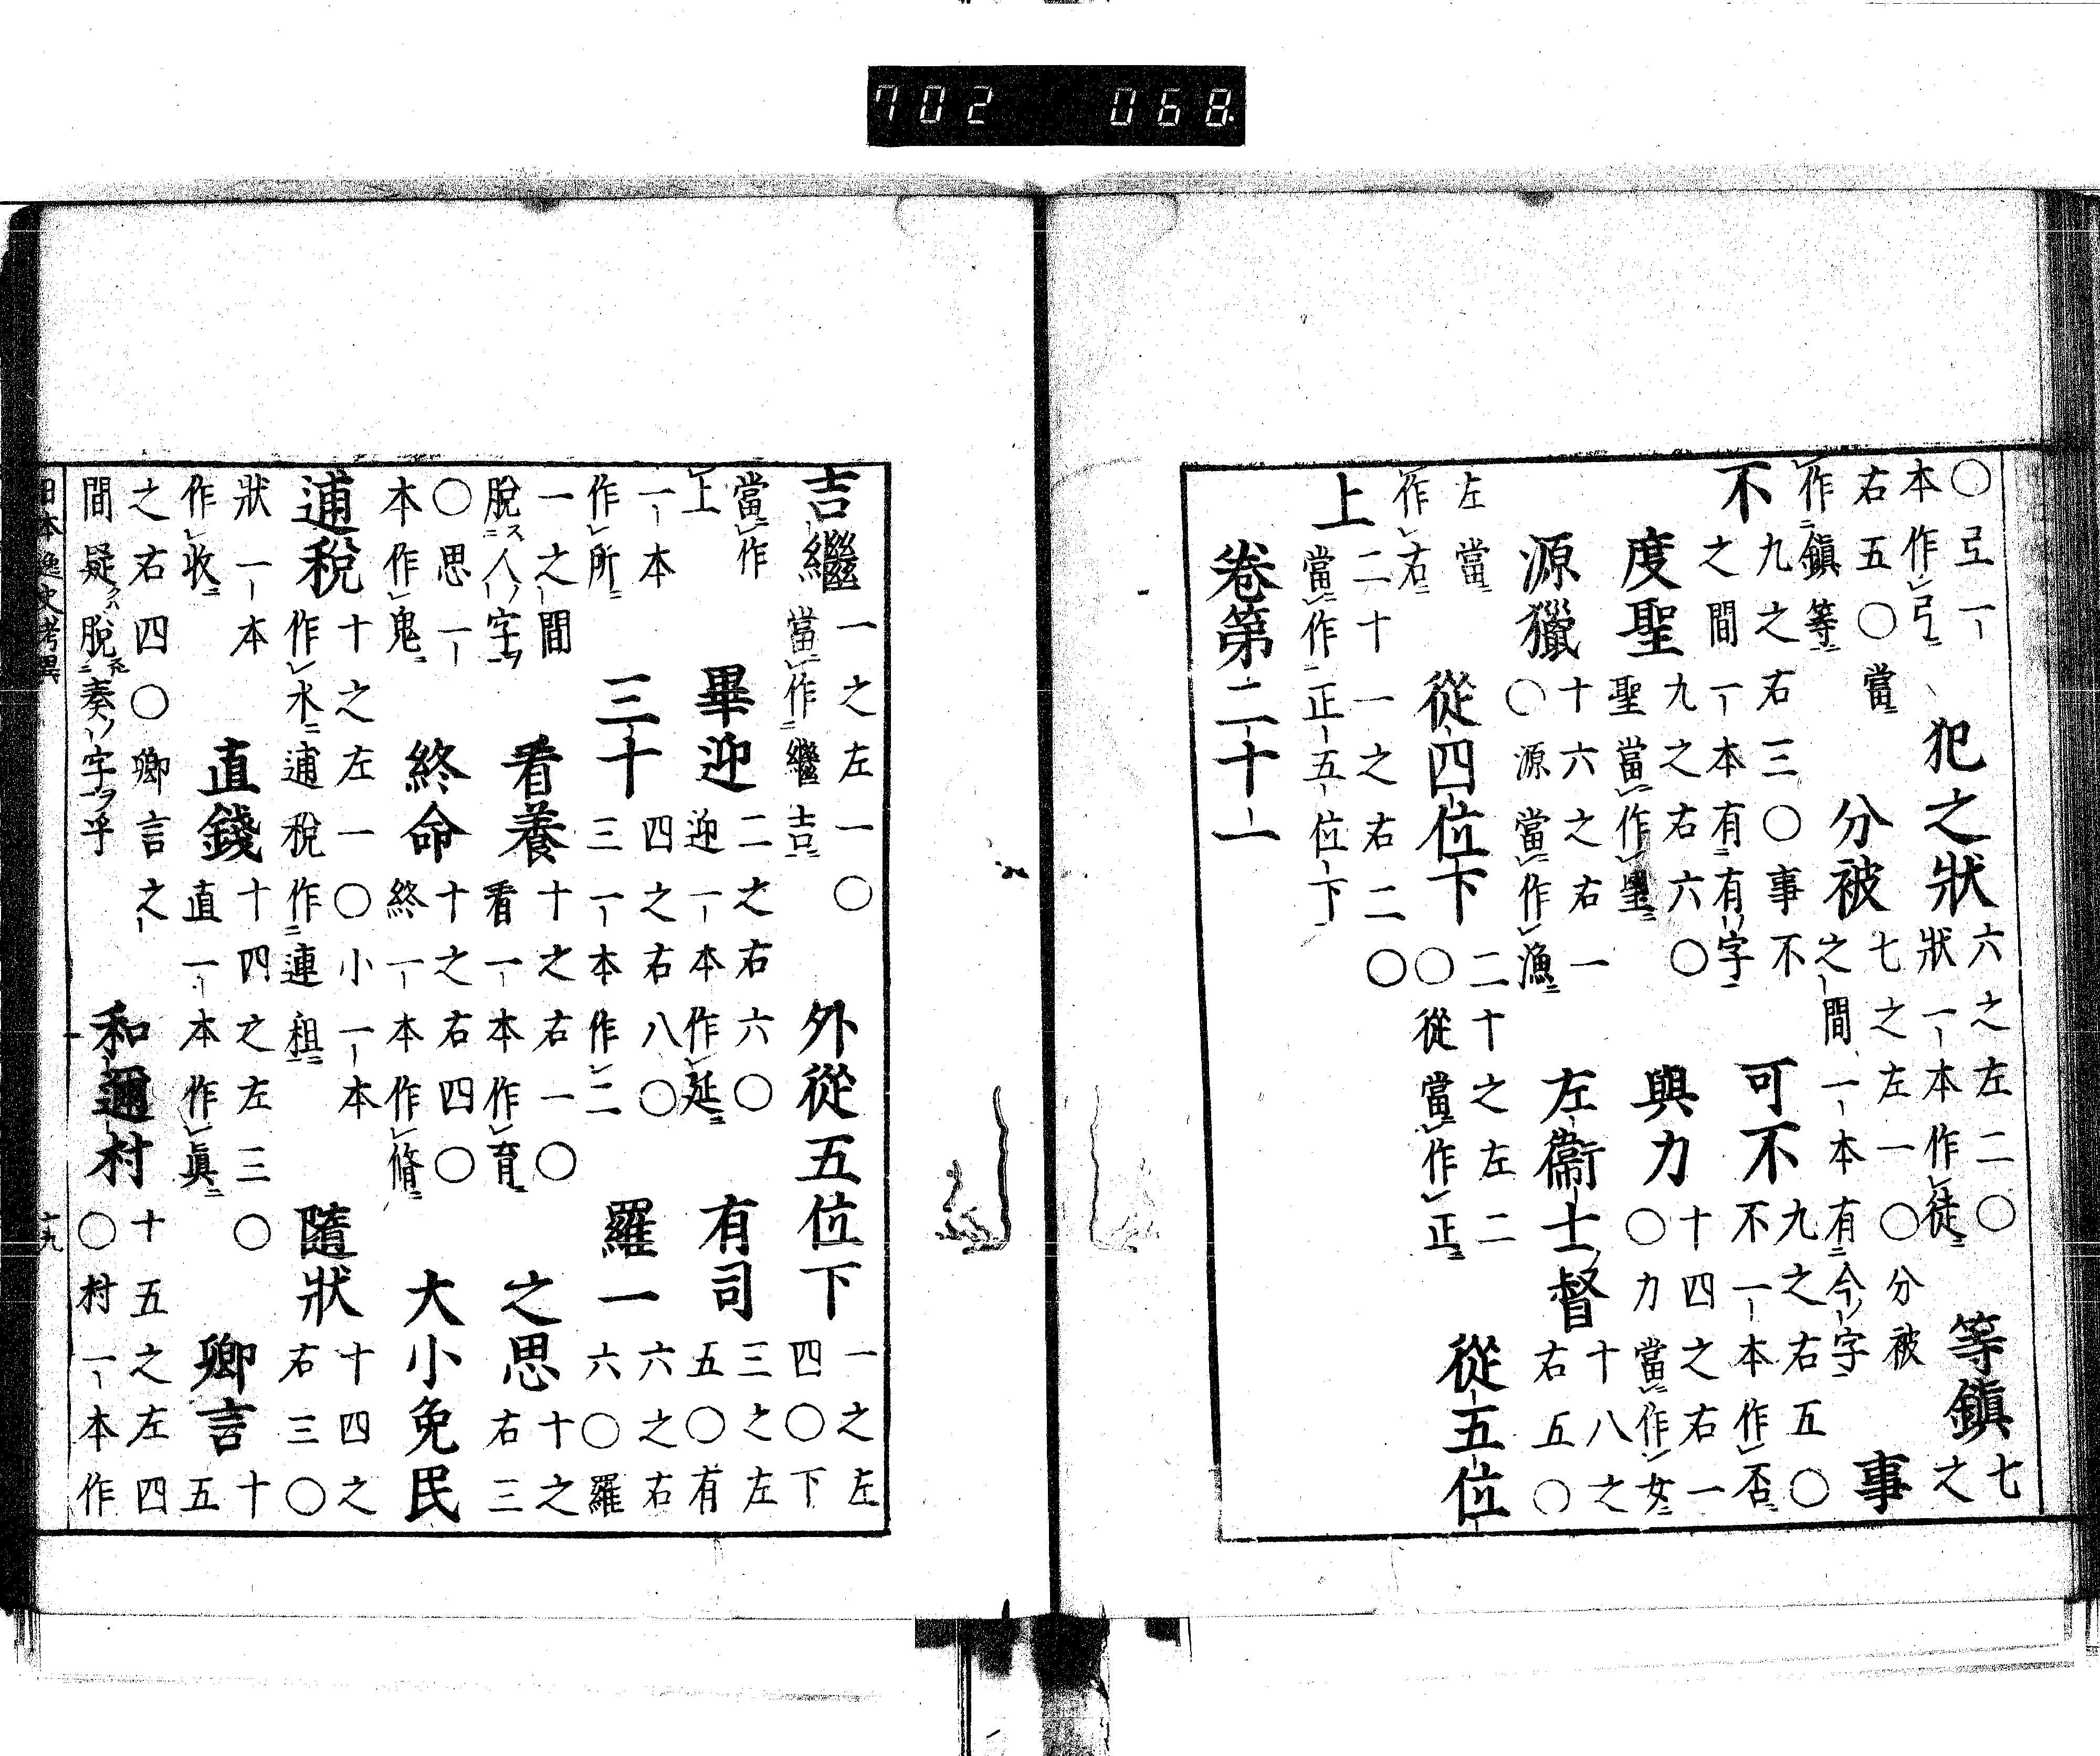 702 068
○弖一本作弖犯之狀六之左二○狀一本作徒等鎮七之
右五○當作鎮等分被七之左一○分被之間一本有今字事
不九之右三○事不之間一本有有字可不九之右五○不一本作否
度聖九之右六○聖當作望與力十四之右一○力當作女
源獵十六之右一○源當作漁左衞士督十八之右五○
左當作右從四位下二十之左二○從當作正從五位
上二十一之右二○當作正五位下
卷第二十一
吉繼一之左一○當作繼吉外從五位下一之左四○下
當作上畢迎二之右六○迎一本作延有司三之左五○有
一本作所三十四之右八○三一本作二羅一六之右六○羅
一之間脫人字看養十之右一○看一本作育之思十之右三
○思一本作鬼終命十之右四○終一本作脩大小免民
逋税十之左一○小一本作水逋税作連租隨狀十四之右三○
狀一本作收直錢十四之左三○直一本作眞卿言十五
之右四○卿言之間疑クハ脫奏ノ字ヲ乎和邇村十五之左四○村一本作
日本逸史考異 十九